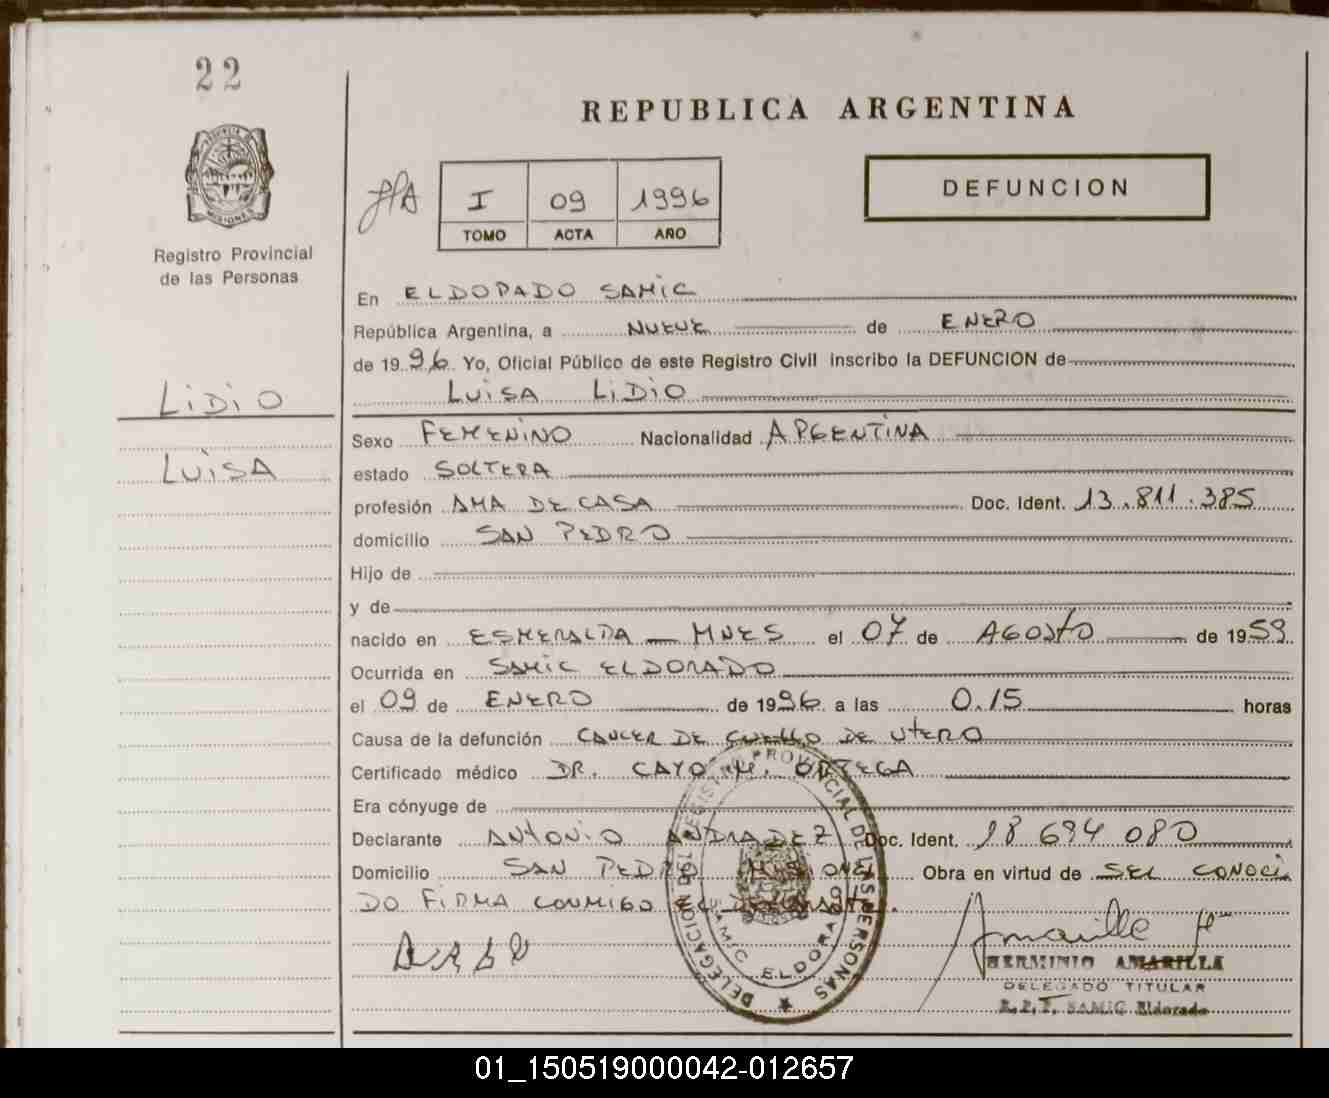 22
REPUBLICA ARGENTINA
PROVINCIA DE
MISIONES
Registro Provincial
de las Personas
I 09 1996
TOMO ACTA AÑO
DEFUNCION
En ELDORADO SAMIC
República Argentina, a NUEVE de ENERO
de 1996. Yo, Oficial Público de este Registro Civil inscribo la DEFUNCION de
LIDIO
LUISA LIDIO
Sexo FEMENINO Nacionalidad ARGENTINA
LUISA
estado SOLTERA
profesión AMA DE CASA Doc. Ident. 13.811.385
domicilio SAN PEDRO
Hijo de
y de
nacido en ESMERALDA - MNES el 07 de AGOSTO de 1959
Ocurrida en SAMIC ELDORADO
el 09 de ENERO de 1996 a las 0.15 horas
Causa de la defunción CANCER DE CUELLO DE UTERO
Certificado médico DR. CAYO M. ORTEGA
Era cónyuge de
Declarante ANTONIO ANDRADEZ Doc. Ident. 18 694 080
Domicilio SAN PEDRO MISIONES Obra en virtud de SER CONOCI
DO FIRMA CONMIGO EL DECLARANTE.
DELEGACION DEL REGISTRO PROVINCIAL DE LAS PERSONAS
SAMIC ELDORADO
Amarilla H
HERMINIO AMARILLA
DELEGADO TITULAR
R.P.P. SAMIC Eldorado
01_150519000042-012657